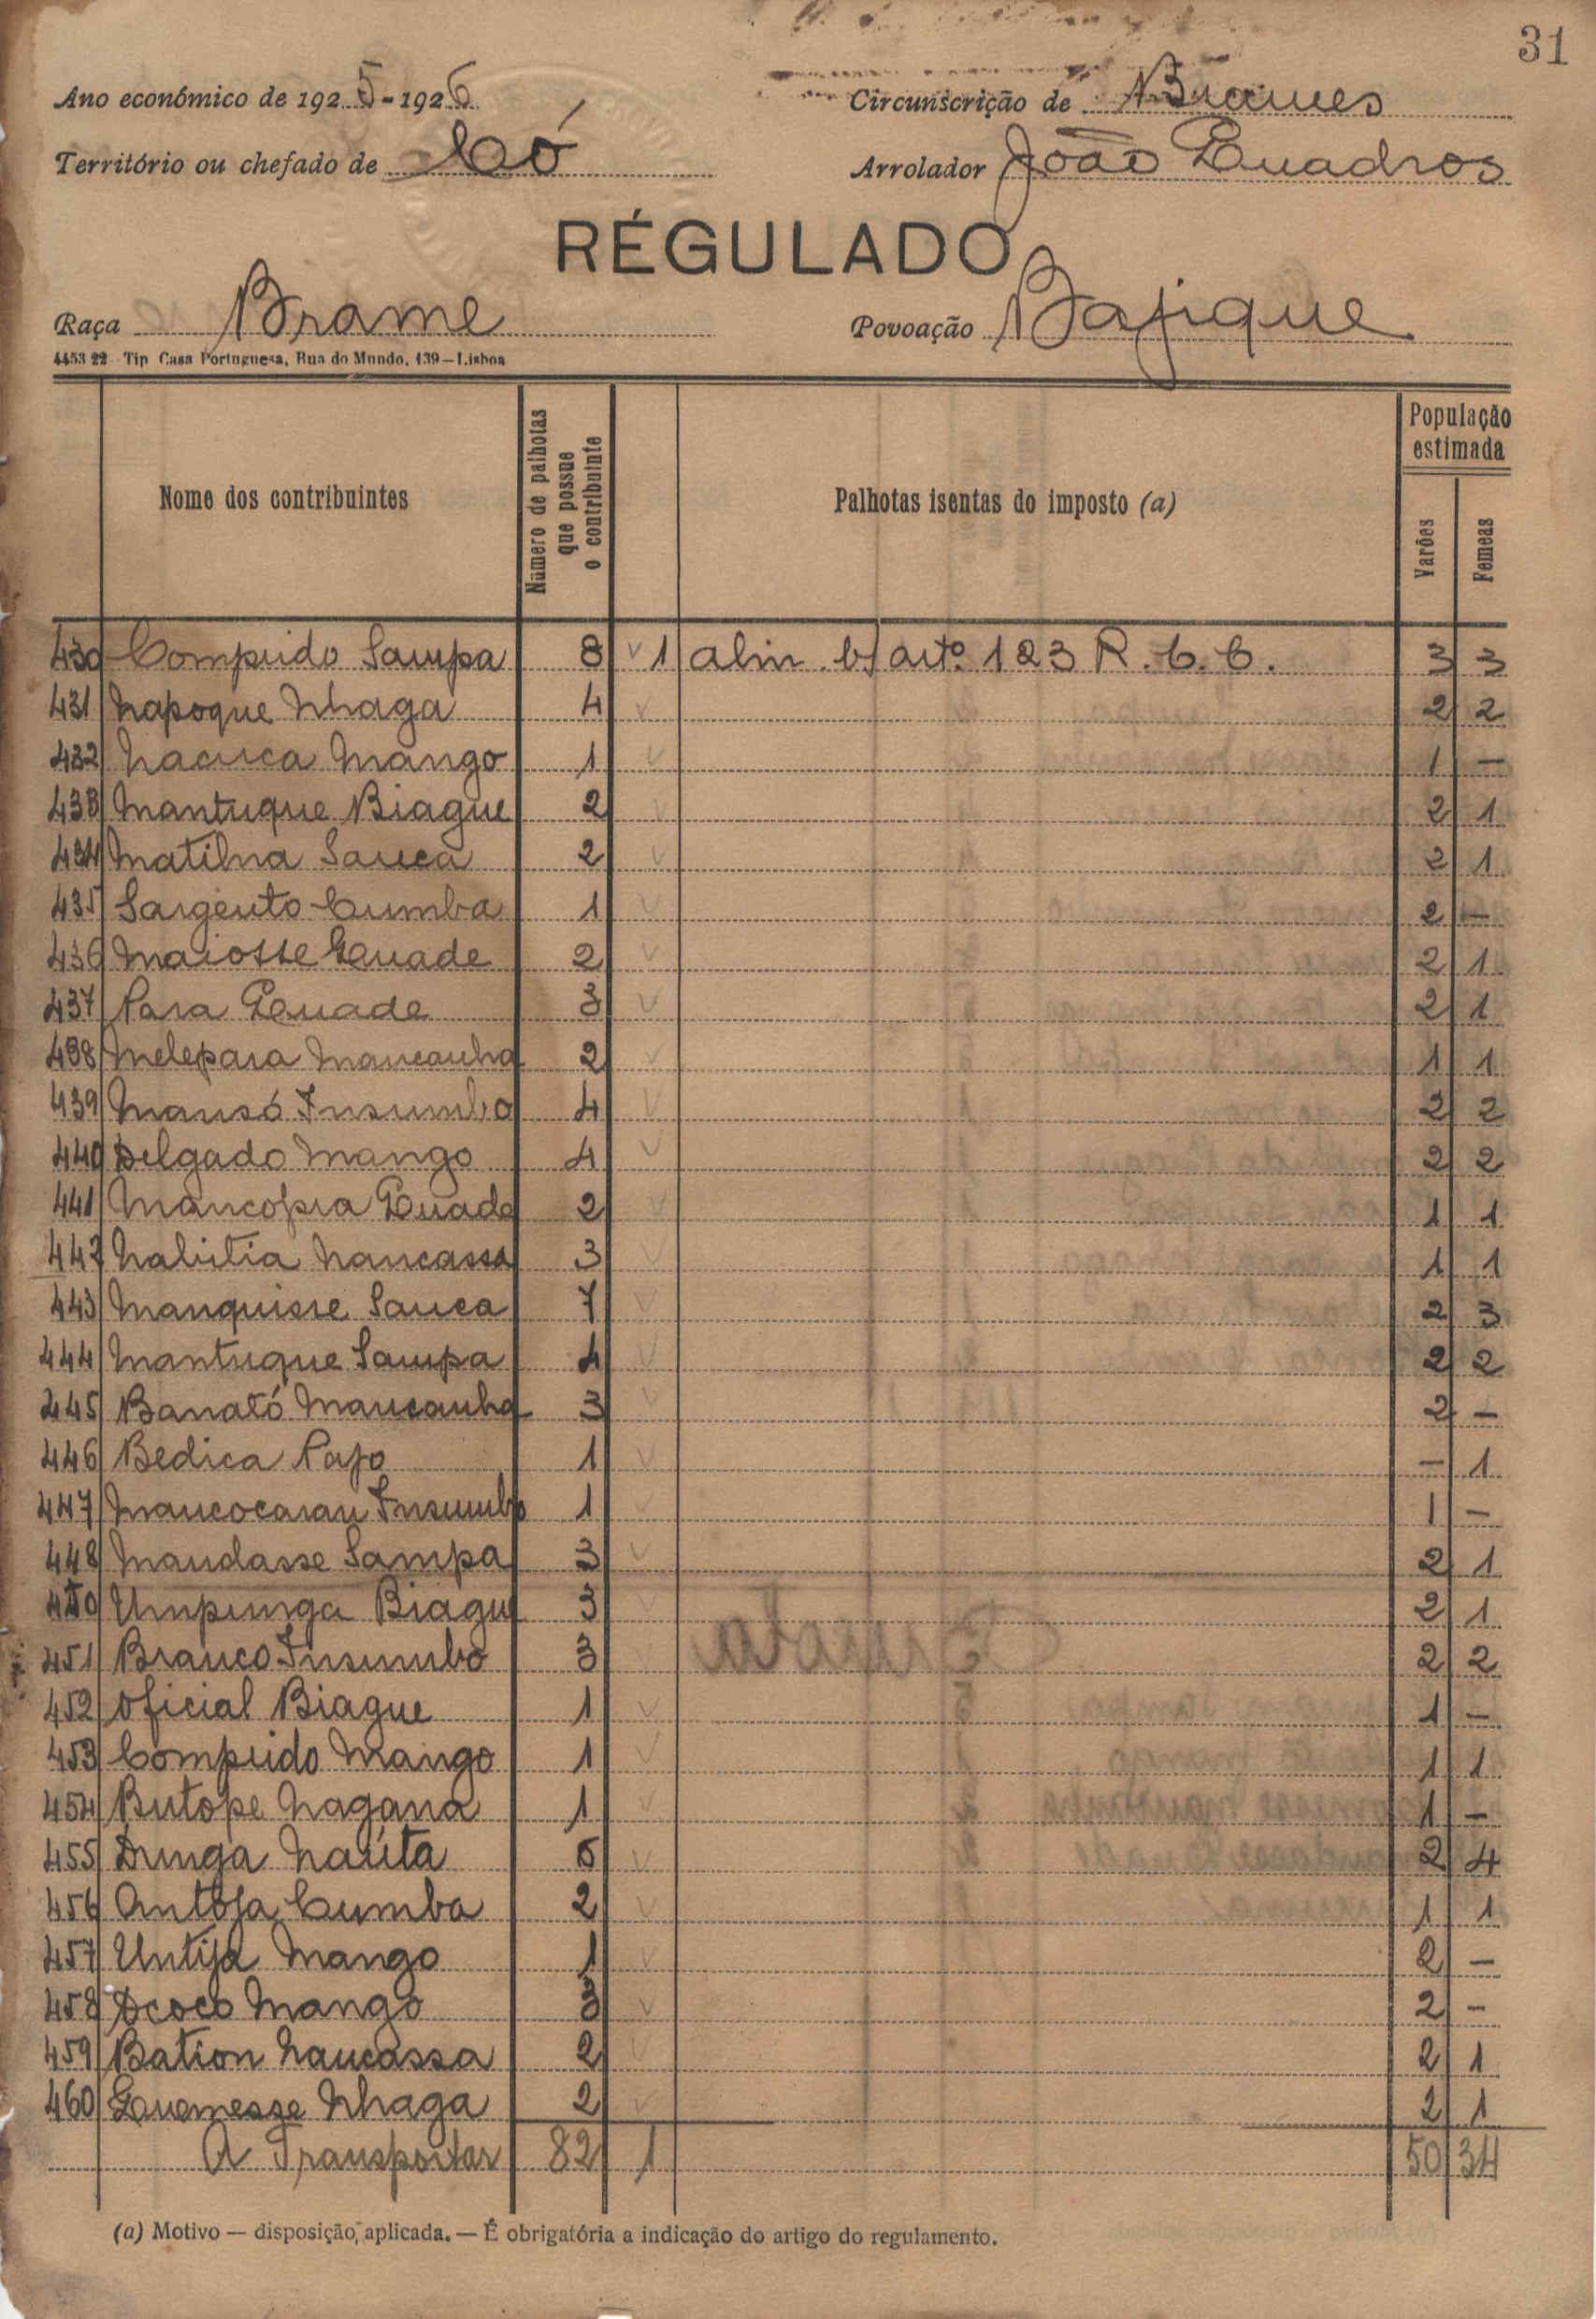 31
Ano económico de 1925-1926 Circunscrição de Brames
Território ou chefado de Có Arrolador João Quadros
RÉGULADO
Raça Brame Povoação Bajique
4453 22 Tip Casa Portuguesa, Rua do Mundo, 139—Lisboa
Nome dos contribuintes Número de palhotas que possue o contribuinte Palhotas isentas do imposto (a) População estimada Varões Femeas
430 Comprido Sampa 8 v 1 alin. b) artº 123 R. C. C. 3 3
431 Napoque Nhaga 4 v 2 2
432 Nacuca Mango 1 v 1 —
433 Mantuque Biague 2 v 2 1
434 Matilna Sauca 2 v 2 1
435 Sargento Cumba 1 v 2 —
436 Maiosse Quade 2 v 2 1
437 Para Quade 3 v 2 1
438 Melepara Mancanha 2 v 1 1
439 Mansó Insumbo 4 v 2 2
440 Delgado Mango 4 v 2 2
441 Mancopra Quade 2 v 1 1
442 Nabitia Nancassa 3 v 1 1
443 Manquisse Sauca 7 v 2 3
444 Mantuque Sampa 4 v 2 2
445 Banató Mancanha 3 v 2 —
446 Bedica Pajo 1 v — 1
447 Mancocarau Insumbo 1 v 1 —
448 Maudasse Sampa 3 v 2 1
450 Umpunga Biague 3 v 2 1
451 Branco Insumbo 3 2 2
452 Oficial Biague 1 v 1 —
453 Comprido Mango 1 v 1 1
454 Butope Nagana 1 v 1 —
455 Dunga Naúta 6 v 2 4
456 Antoja Cumba 2 v 1 1
457 Untija Mango 1 v 2 —
458 Dcoco Mango 3 v 2 —
459 Bation Nancassa 2 v 2 1
460 Quemesse Nhaga 2 v 2 1
A Transportar 82 1 50 34
(a) Motivo — disposição, aplicada. — É obrigatória a indicação do artigo do regulamento.